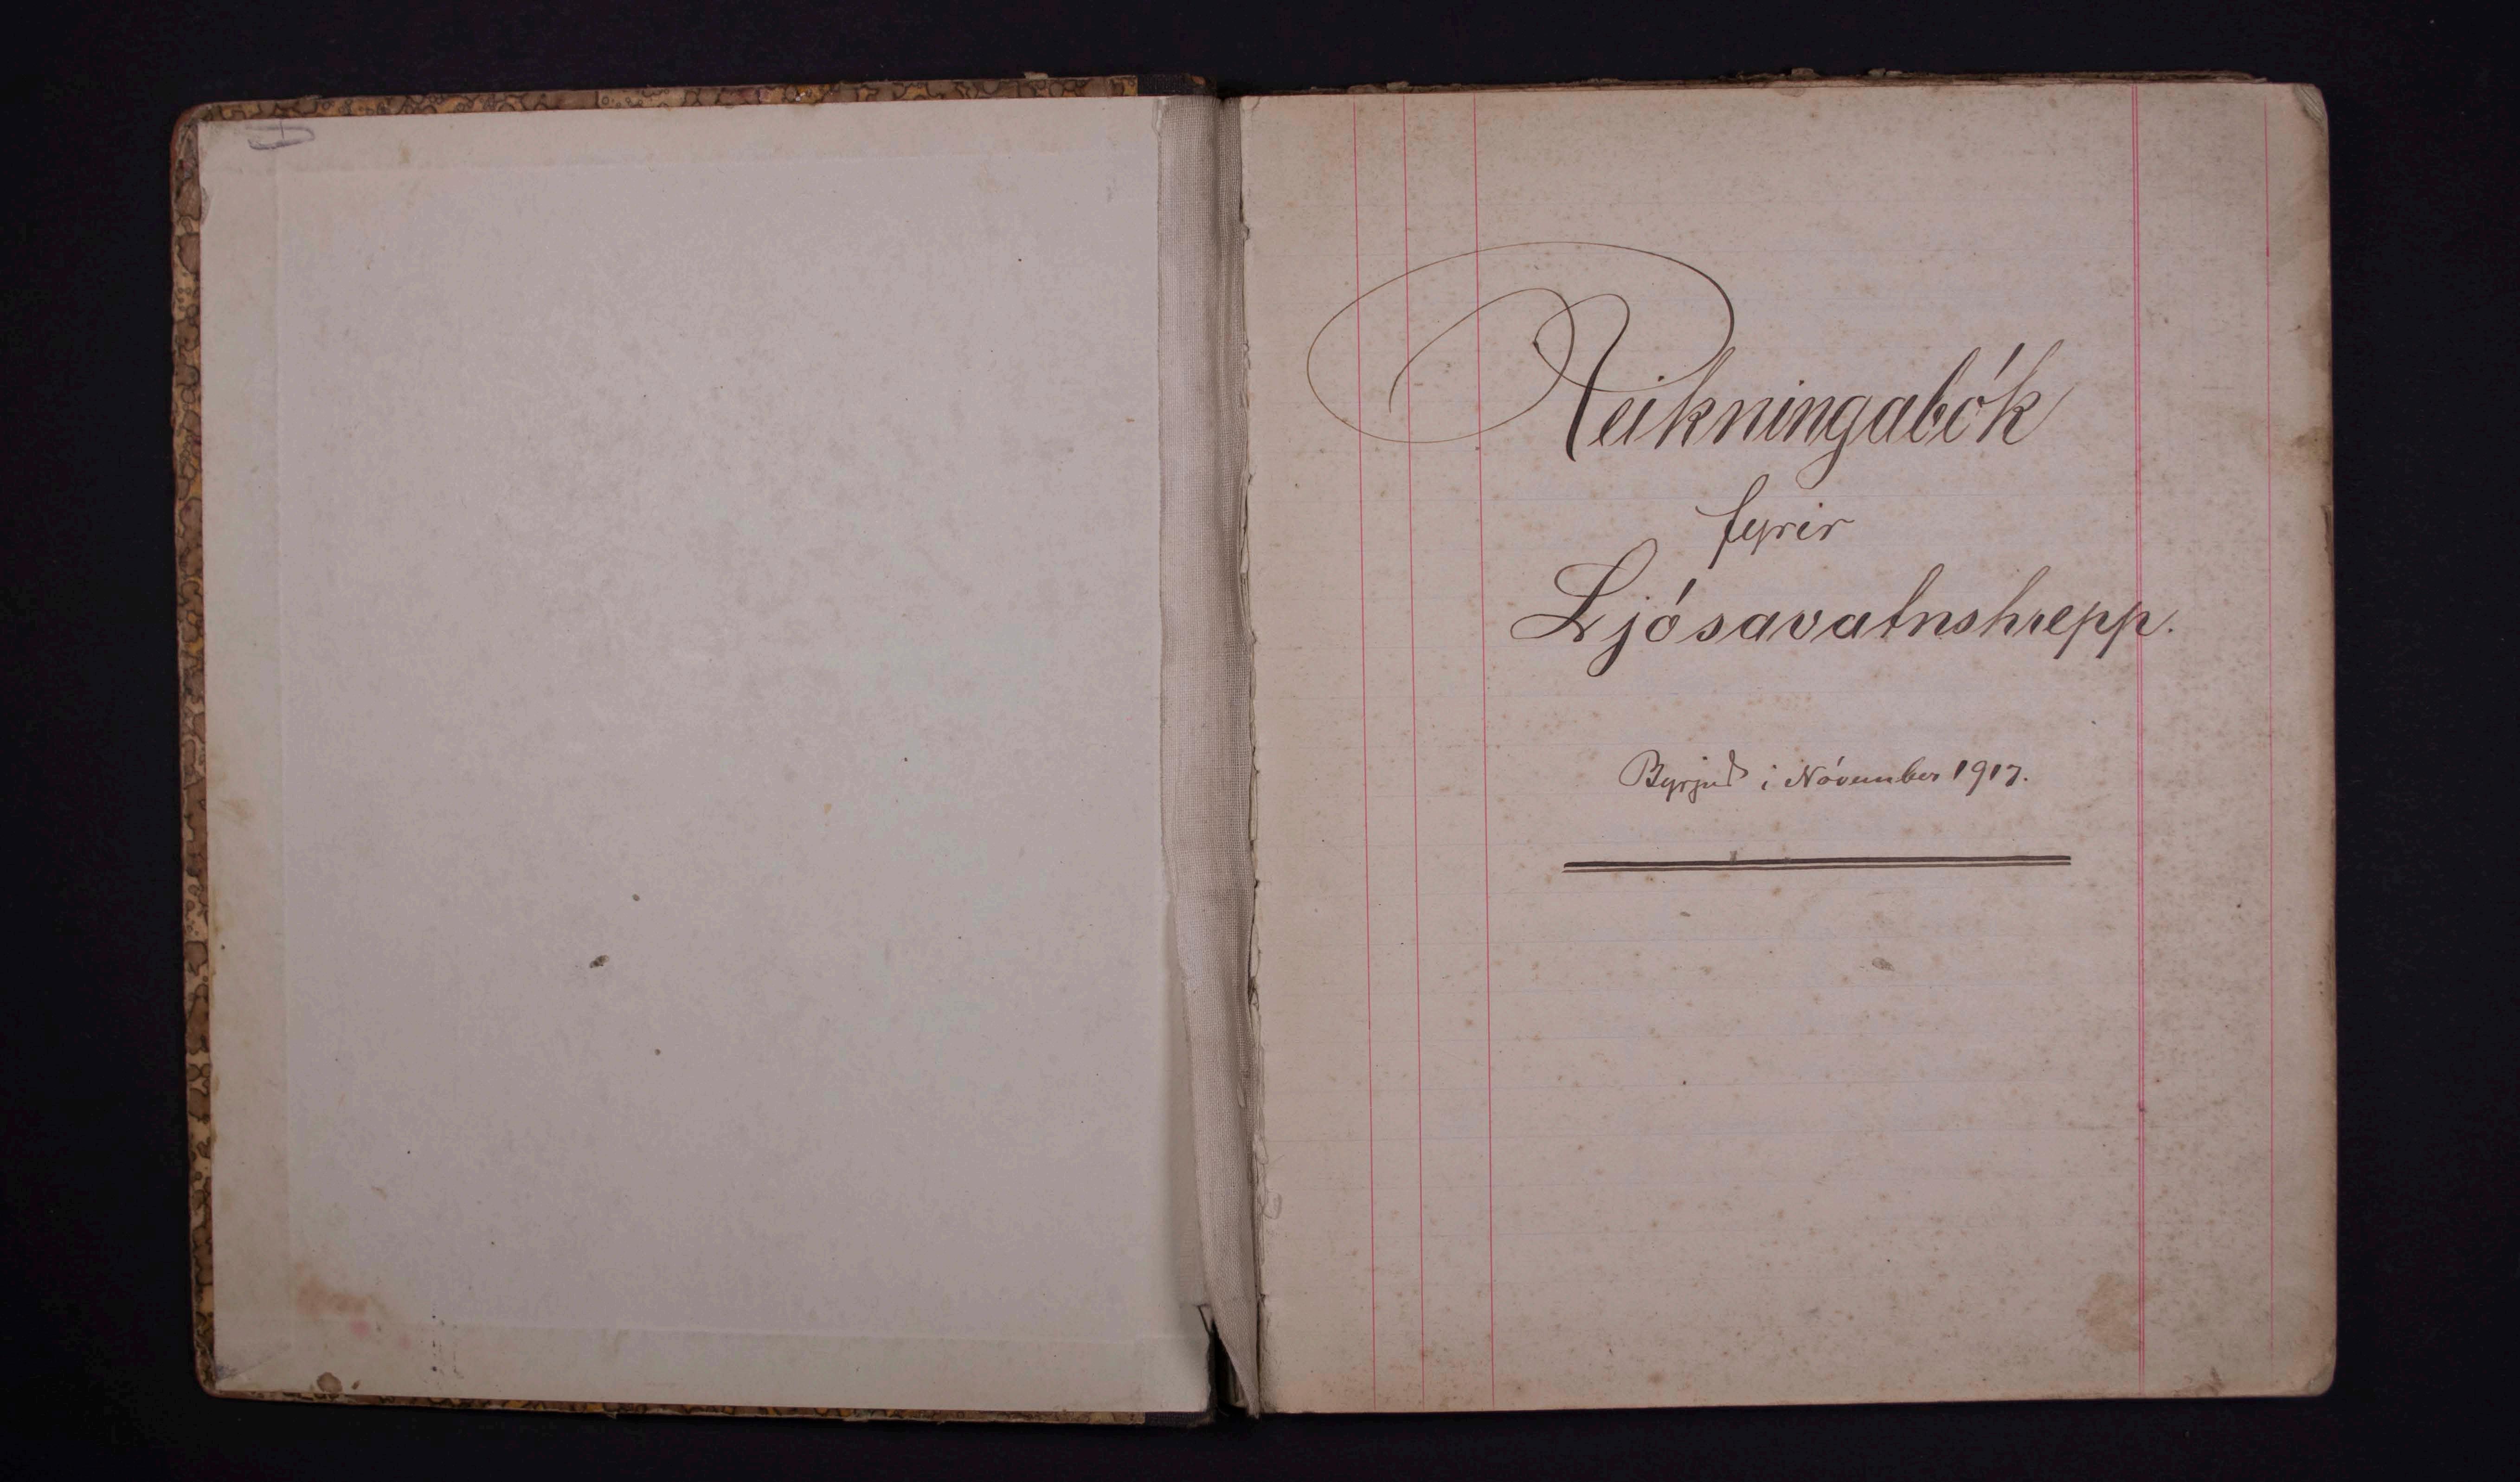 Reikningabók
fyrir
Ljósavatnshrepp.
Byrjuð í Nóvember 1917.